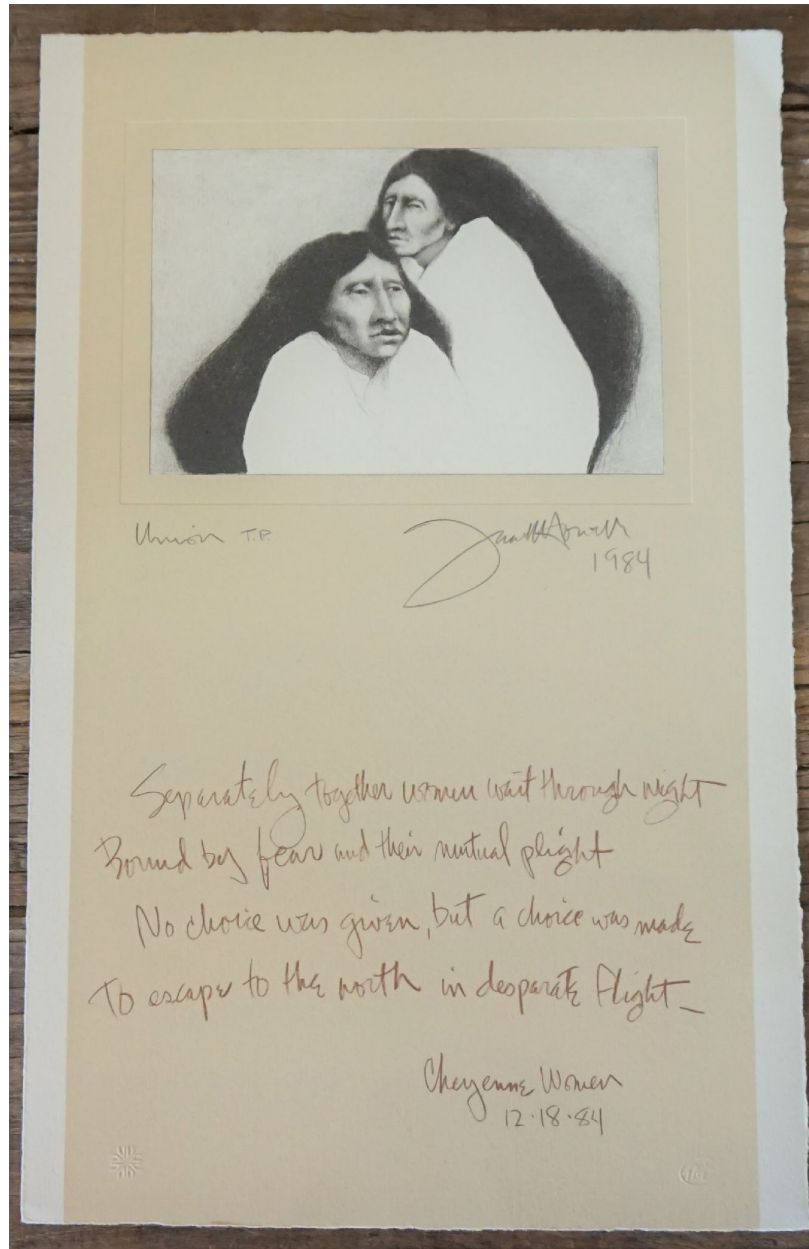 Union T.P.
Frank Howell
1984
Separately together women wait through night
Bound by fear and their mutual plight
No choice was given, but a choice was made
To escape to the north in desparate flight_
Cheyenne Women
12·18·84